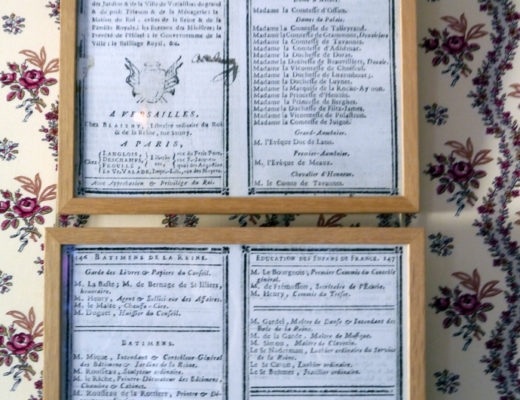 des Jardins & de la Ville de Versailles du grand
& du petit Trianon & de la Ménagerie; la
Maison du Roi, celles de la Reine & de la
Famille Royale; les Bureaux des Ministres; la
Prévôté de l'Hôtel; le Gouvernement de la
Ville; le Bailliage Royal, &c.
A VERSAILLES,
Chez BLAIZOT, Libraire ordinaire du Roi
& de la Reine, rue Satory.
A PARIS,
Chez
LANGLOIS,
DESCHAMPS,
LA Ve. VALADE, Impr.-Lib., rue des Noyers.
Libraire
rue du Petit-Pont.
rue S.-Jacques.
quai des Augustins.
Avec Approbation & Privilége du Roi.
Madame la Comtesse d'Ossun.
Dames du Palais.
Madame la Comtesse de Talleyrand.
Madame la Comtesse de Grammont, Douairière
Madame la Comtesse de Tavannes.
Madame la Comtesse d'Adhémar.
Madame la Duchesse de Duras.
Madame la Duchesse de Beauvilliers, Douair.
Madame la Vicomtesse de Choiseul.
Madame la Duchesse de Luxembourg.
Madame la Duchesse de Luynes.
Madame la Marquise de la Roche-Aymon.
Madame la Princesse d'Hénin.
Madame la Princesse de Berghes.
Madame la Duchesse de Fitz-James.
Madame la Vicomtesse de Polastron.
Madame la Comtesse de Juigné.
Grand-Aumônier.
M. l'Evêque Duc de Laon.
Premier-Aumônier.
M. l'Evêque de Meaux.
Chevalier d'Honneur.
M. le Comte de Tavannes.
146 BATIMENS DE LA REINE.
Garde des Livres & Papiers du Conseil.
M. La Baste; M. de Bernage de St Illiers,
honoraire.
M. Henry, Agent & Sollicit. des Affaires.
M. le Maire, Chauffe-Cire.
M. Duguet, Huissier du Conseil.
BATIMENS.
M. Mique, Intendant & Contrôleur-Général
des Bâtimens & Jardins de la Reine.
M. Rousseau, Sculpteur ordinaire.
M. le Riche, Peintre-Décorateur des Bâtimens,
Chambre & Cabinet.
M. Rousseau de la Rottiere, Peintre & Dé-
EDUCATION DES ENFANS DE FRANCE. 147
M. Le Bourgeois, Premier Commis du Contrôle
général.
M. de Frémusson, Secrétaire de l'Ecurie.
M. Henry, Commis du Trésor.
M. Gardel, Maître de Danse & Intendant des
Bals de la Reine.
M. de la Garde, Maître de Musique.
M. Simon, Maître de Clavecin.
Le Sr Naderman, Luthier ordinaire du Service
de la Reine.
Le Sr Luthier ordinaire.
Luthier ordinaire.